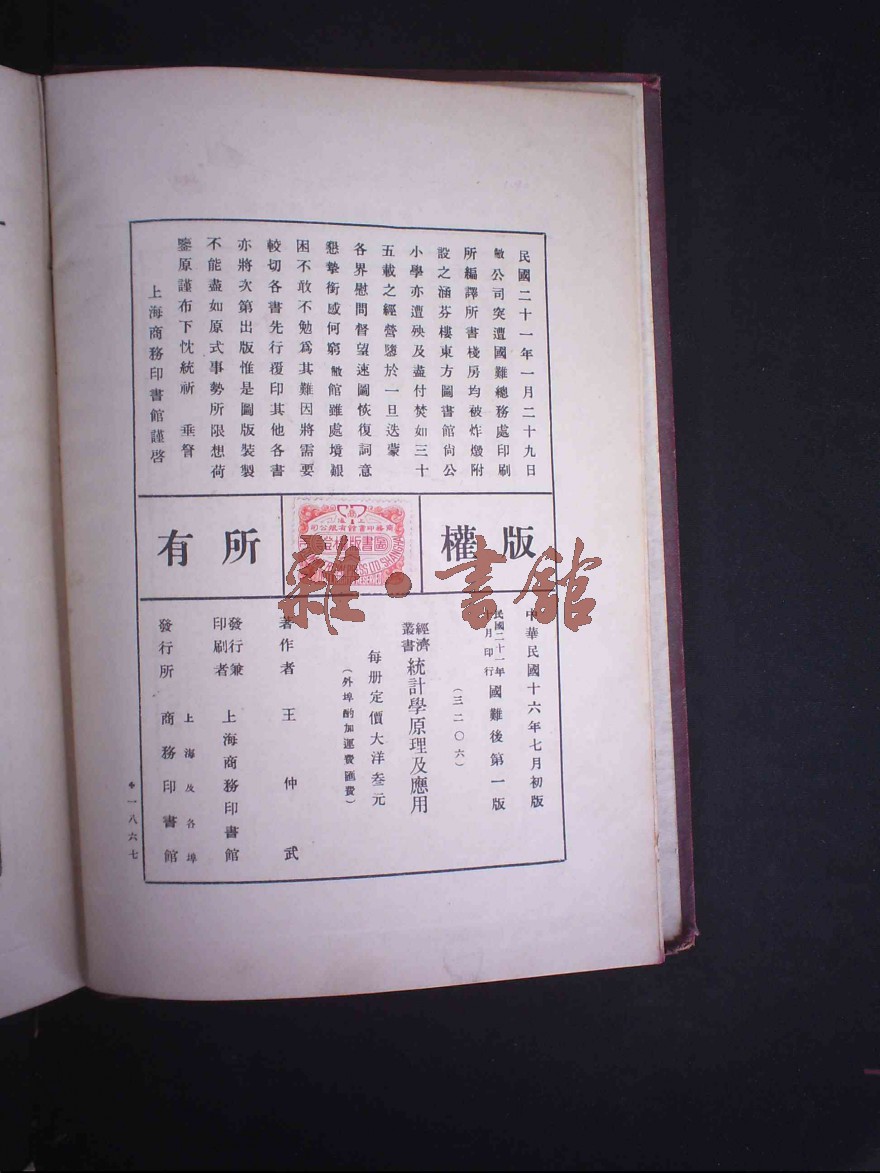 民國二十一年一月二十九日
敝公司突遭國難總務處印刷
所編譯所書棧房均被炸燬附
設之涵芬樓東方圖書館尚公
小學亦遭殃及盡付焚如三十
五載之經營隳於一旦迭蒙
各界慰問督望速圖恢復詞意
懇摯銜感何窮敝館雖處境艱
困不敢不勉爲其難因將需要
較切各書先行覆印其他各書
亦將次第出版惟是圖版裝製
不能盡如原式事勢所限想荷
鑒原謹布下忱統祈 垂詧
上海商務印書館謹啓
版權
所有
上海
商務印書館有限公司
圖書版權
雜·書館
中華民國十六年七月初版
民國二十一年 月印行 國難後第一版
(三二〇六)
經濟叢書 統計學原理及應用
每册定價大洋叁元
(外埠酌加運費匯費)
著作者 王仲武
發行兼印刷者 上海商務印書館
上海及各埠
發行所 商務印書館
一八六七